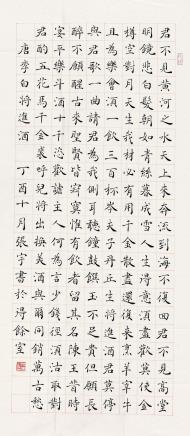 君不見黃河之水天上來奔流到海不復回君不見高堂
明鏡悲白髮朝如青絲暮成雪人生得意須盡歡莫使金
樽空對月天生我材必有用千金散盡還復來烹羊宰牛
且為樂會須一飲三百杯岑夫子丹丘生將進酒君莫停
與君歌一曲請君為我側耳聽鐘鼓饌玉不足貴但願長
醉不願醒古來聖賢皆寂寞惟有飲者留其名陳王昔時
宴平樂斗酒十千恣歡謔主人何為言少錢徑須沽取對
君酌五花馬千金裘呼兒將出換美酒與爾同銷萬古愁
唐李白將進酒 丁酉十月張宇書於得餘室